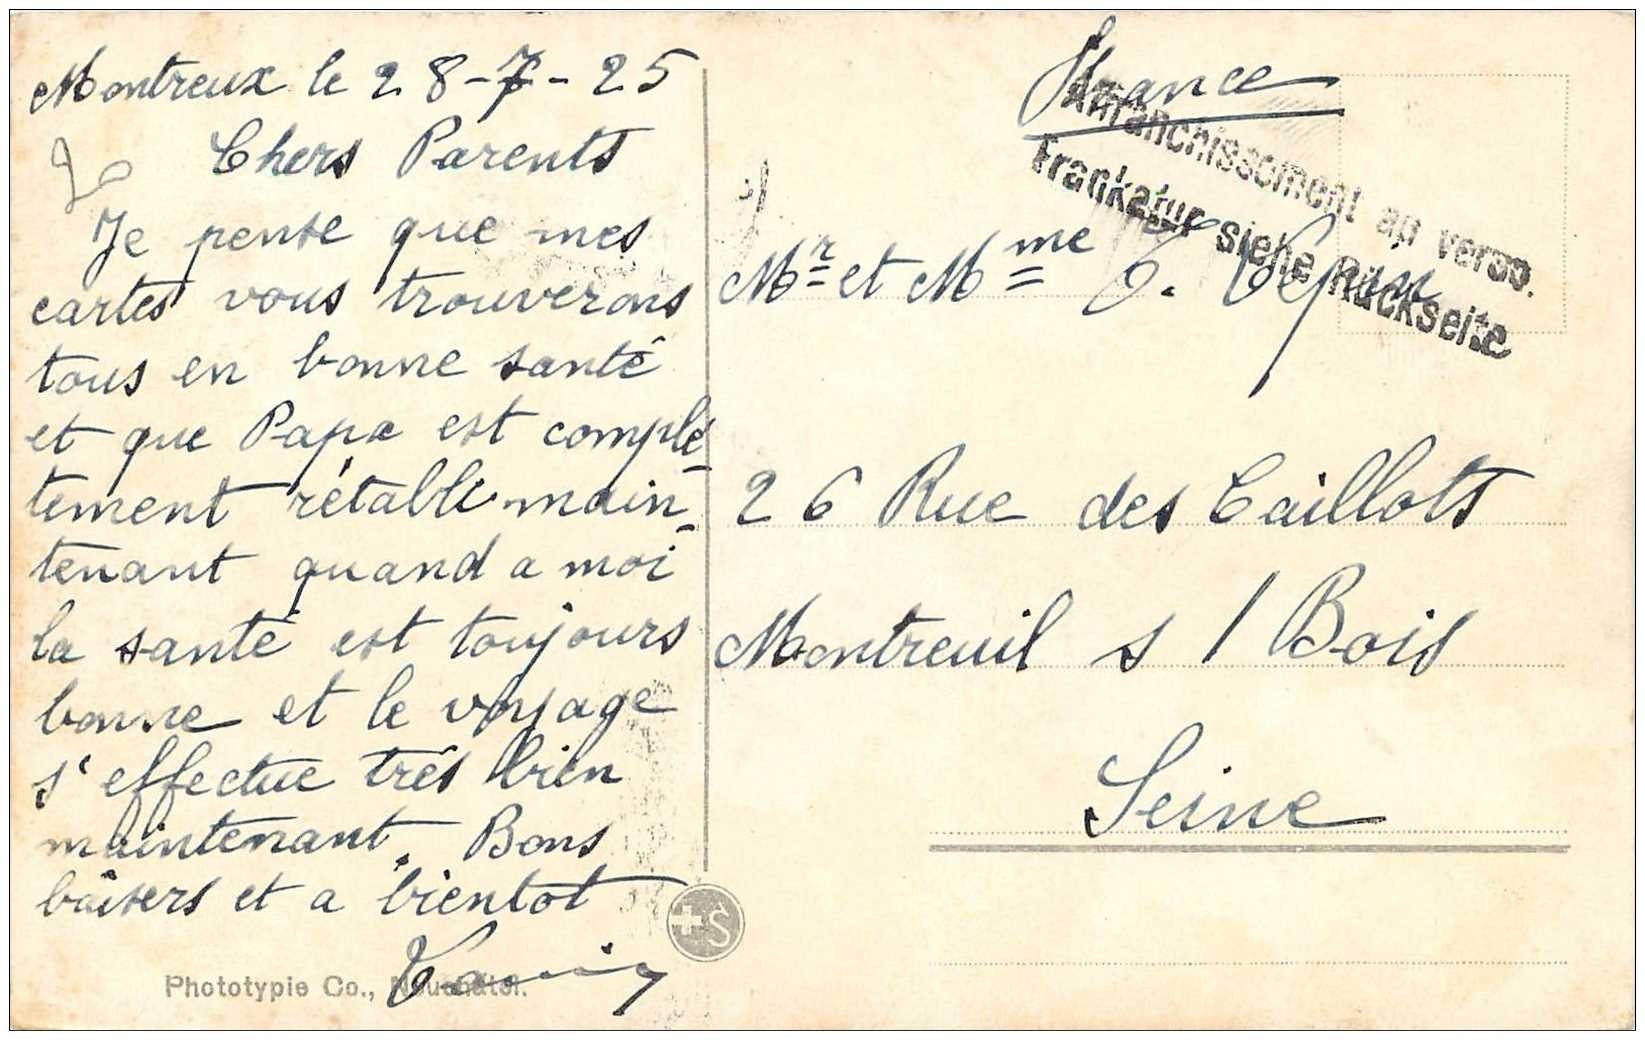 Montreux le 28-7-25
Chers Parents
Je pense que mes
cartes vous trouverons
tous en bonne santé
et que Papa est complé-
tement rétabli main-
tenant quand a moi
la santé est toujours
bonne et le voyage
s'effectue très bien
maintenant. Bons
baisers et a bientot
Phototypie Co., Neuchâtel.
S
France
Affranchissement au verso.
Frankatur siehe Rückseite
Mr et Mme
26 Rue des Caillots
Montreuil s / Bois
Seine